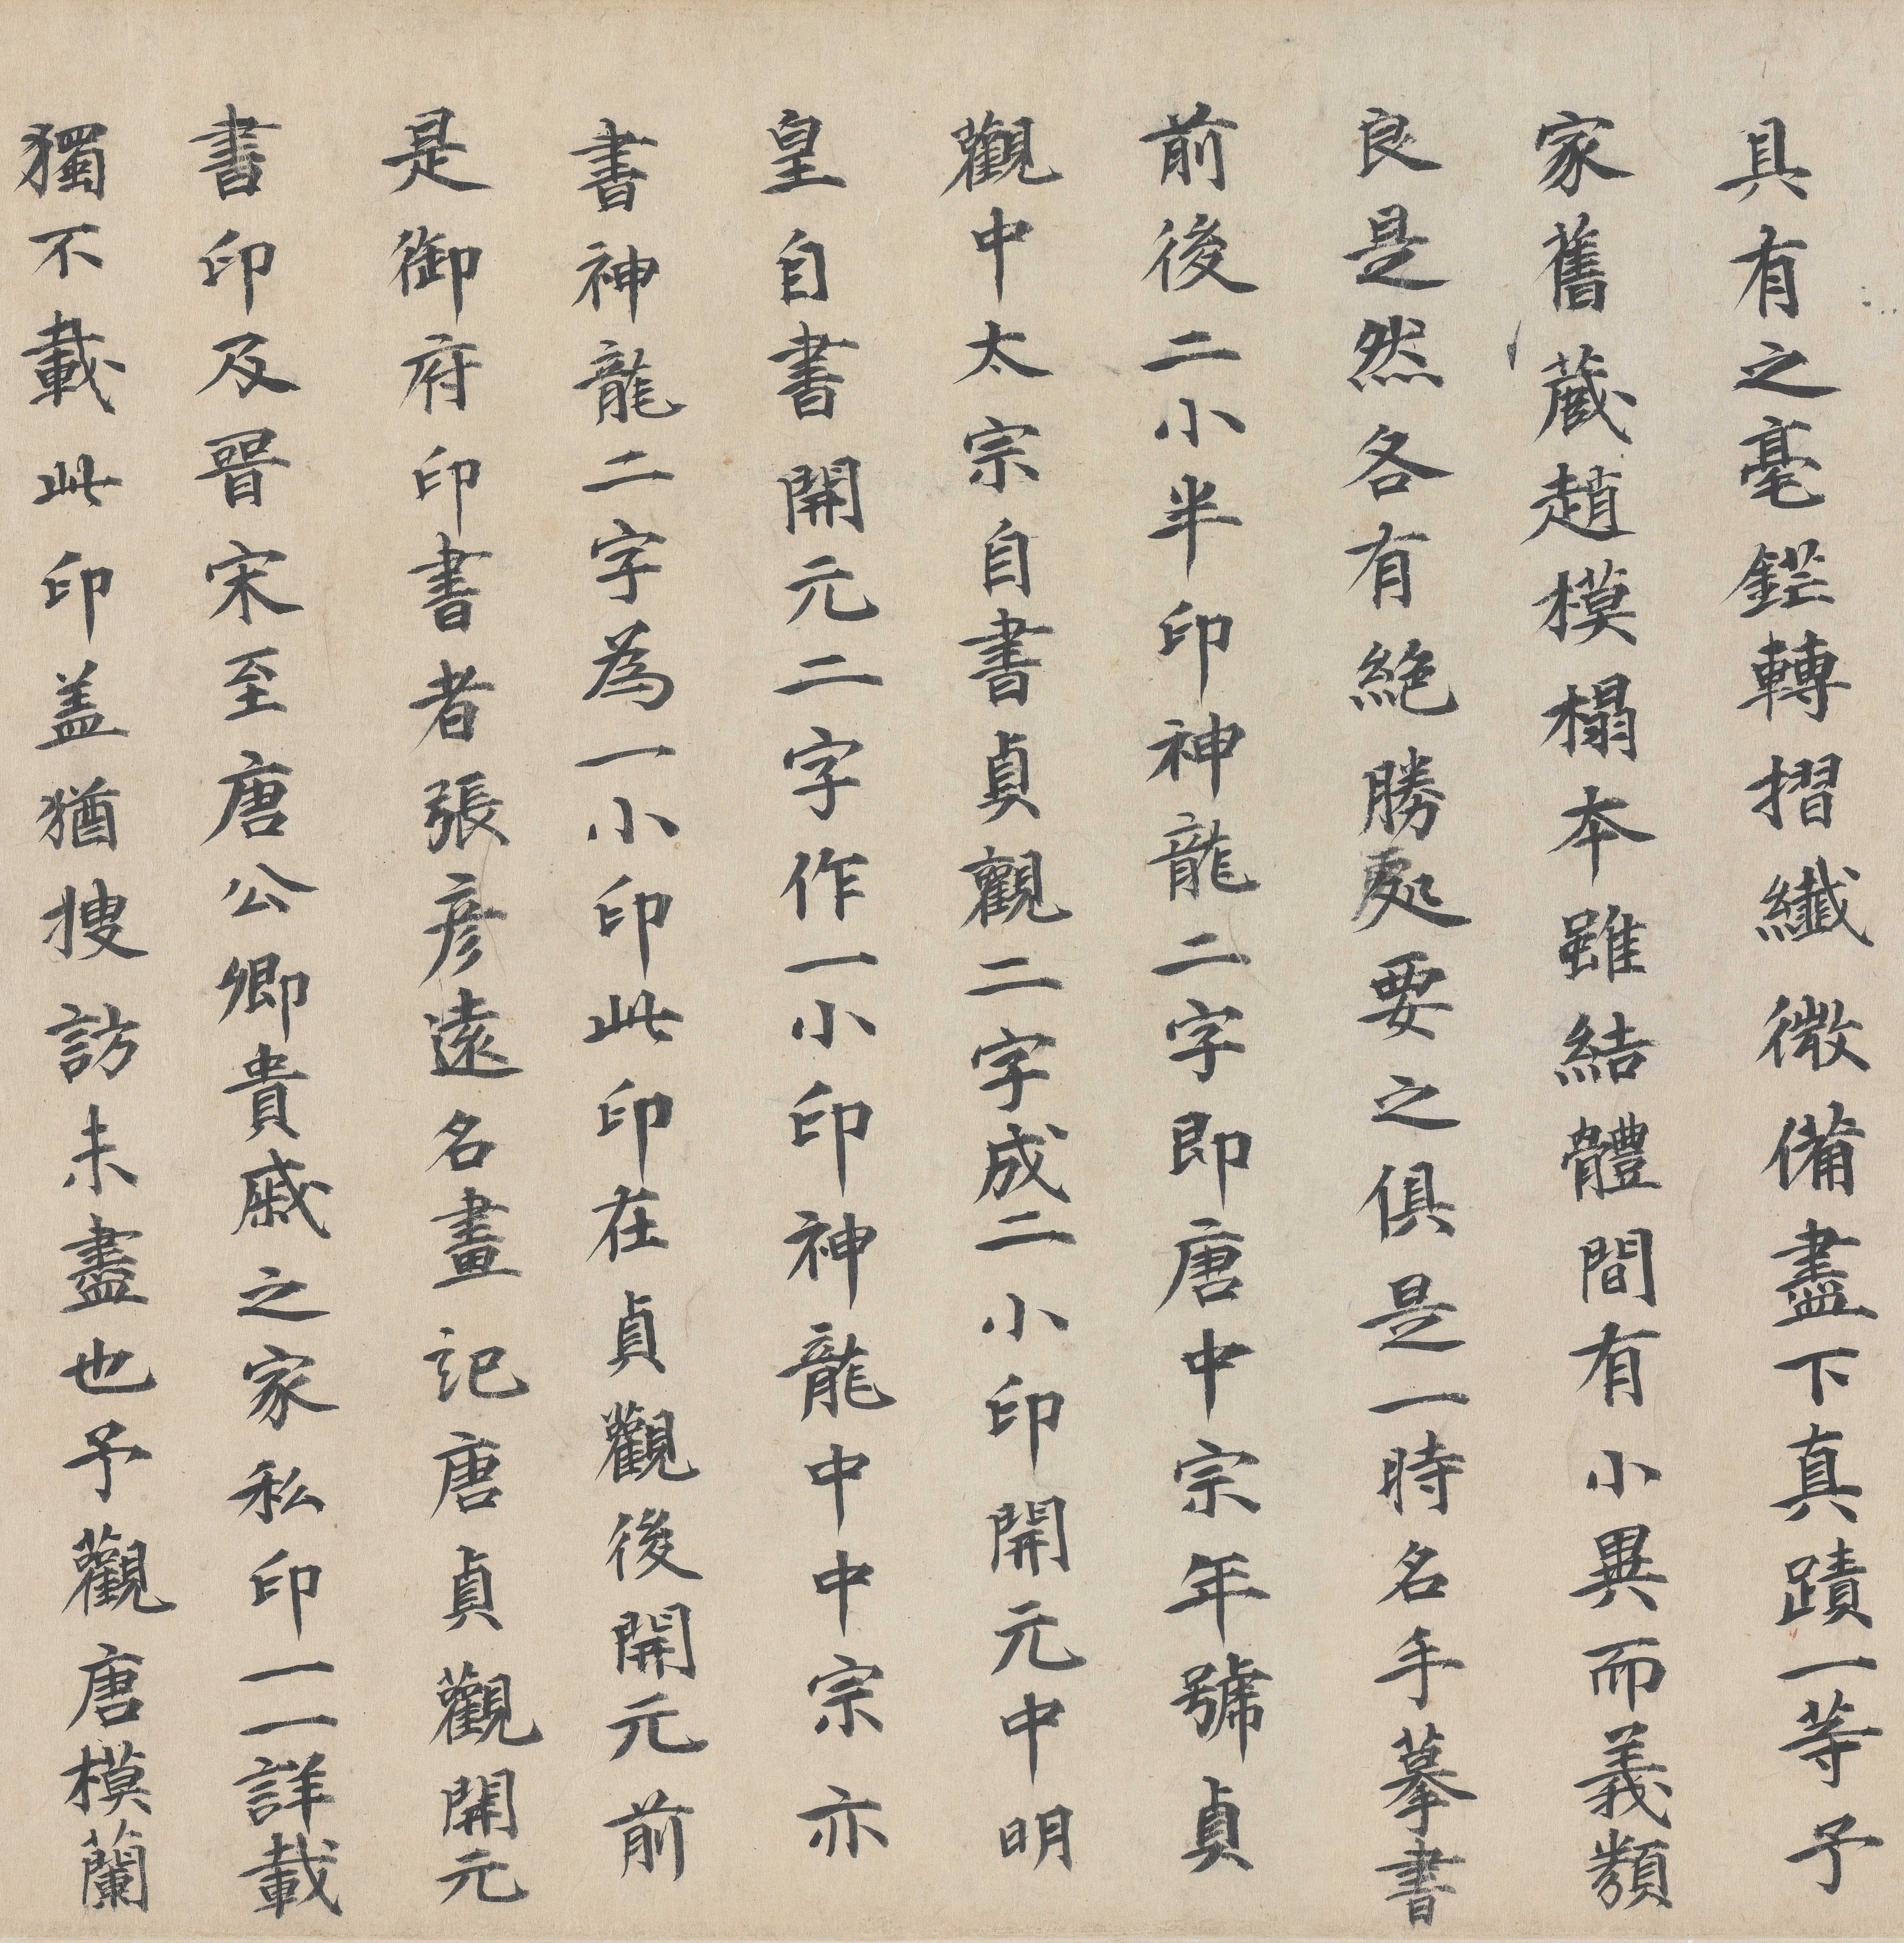 具有之毫鋩轉摺纎微備盡下真蹟一等予
家舊蔵趙模榻本雖結體間有小異而義類
良是然各有絶勝處要之俱是一時名手摹書
前後二小半印神龍二字即唐中宗年號貞
觀中太宗自書貞觀二字成二小印開元中明
皇自書開元二字作一小印神龍中中宗亦
書神龍二字為一小印此印在貞觀後開元前
是御府印書者張彦遠名畫記唐貞觀開元
書印及晉宋至唐公卿貴戚之家私印一一詳載
獨不載此印盖猶搜訪未盡也予觀唐模蘭